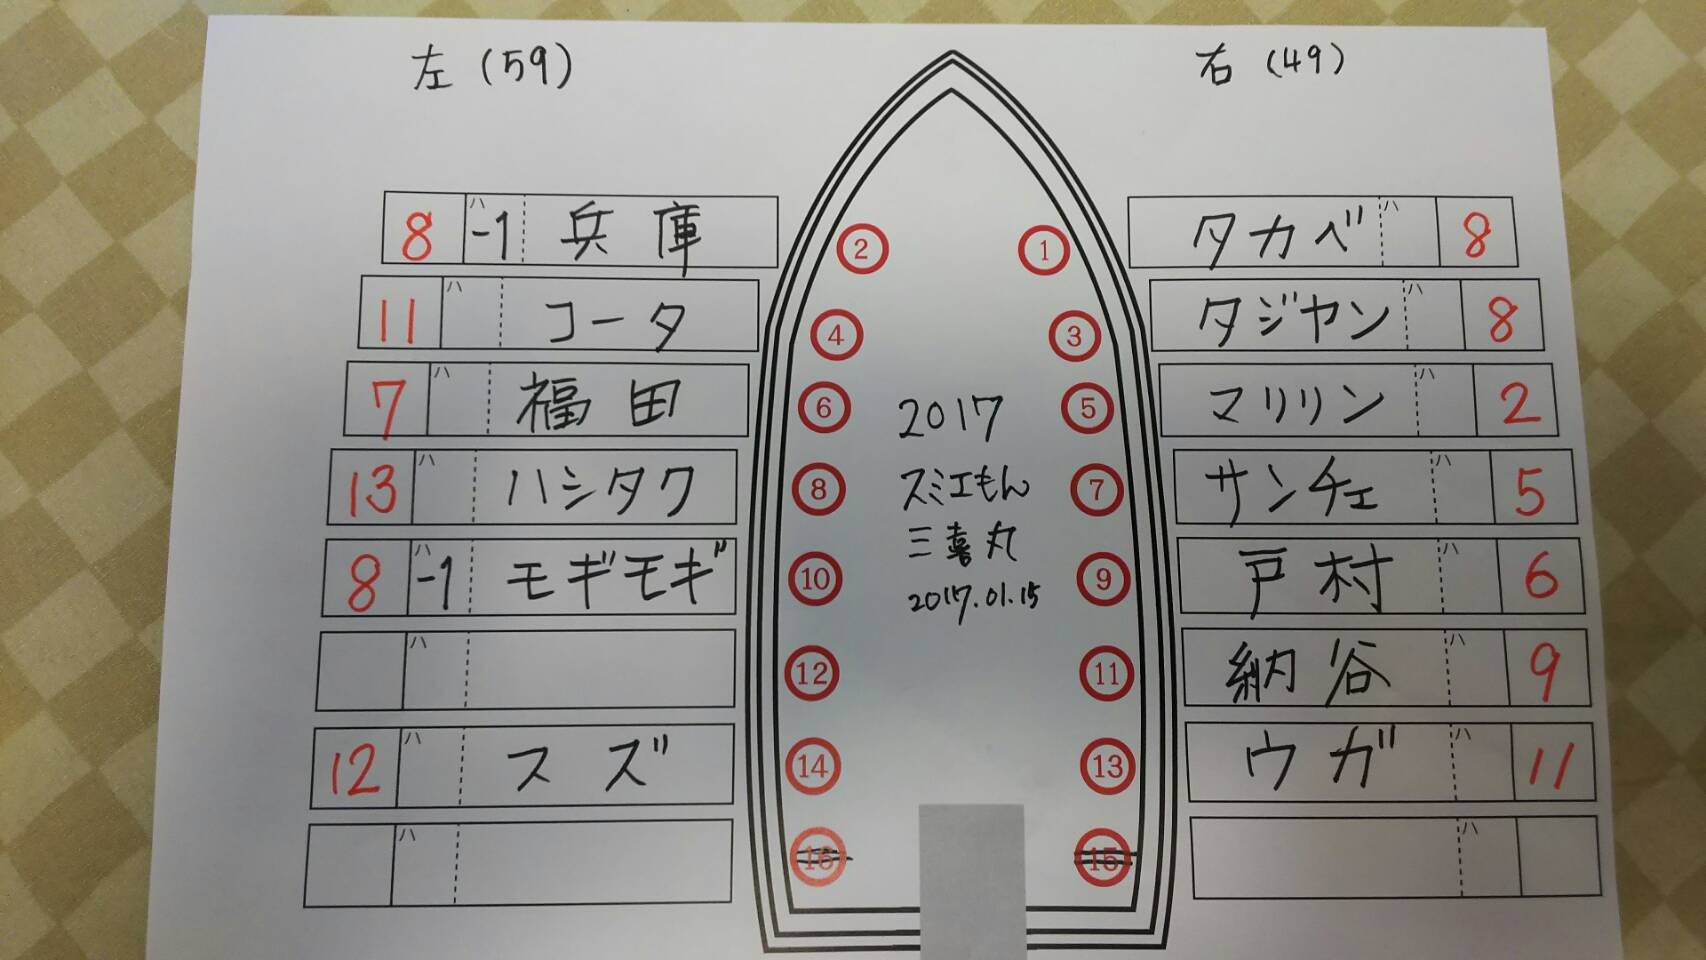 左 (59) 右 (49)
8 ハ -1 兵庫 ② ① タカベ ハ 8
11 ハ コータ ④ ③ タジヤン ハ 8
7 ハ 福田 ⑥ ⑤ マリリン ハ 2
2017
13 ハ ハシタク ⑧ ⑦ サンチェ ハ 5
スミエもん
三喜丸
8 ハ -1 モギモギ ⑩ ⑨ 戸村 ハ 6
2017.01.15
ハ ⑫ ⑪ 納谷 ハ 9
12 ハ スズ ⑭ ⑬ ウガ ハ 11
ハ ⑯ ⑮ ハ